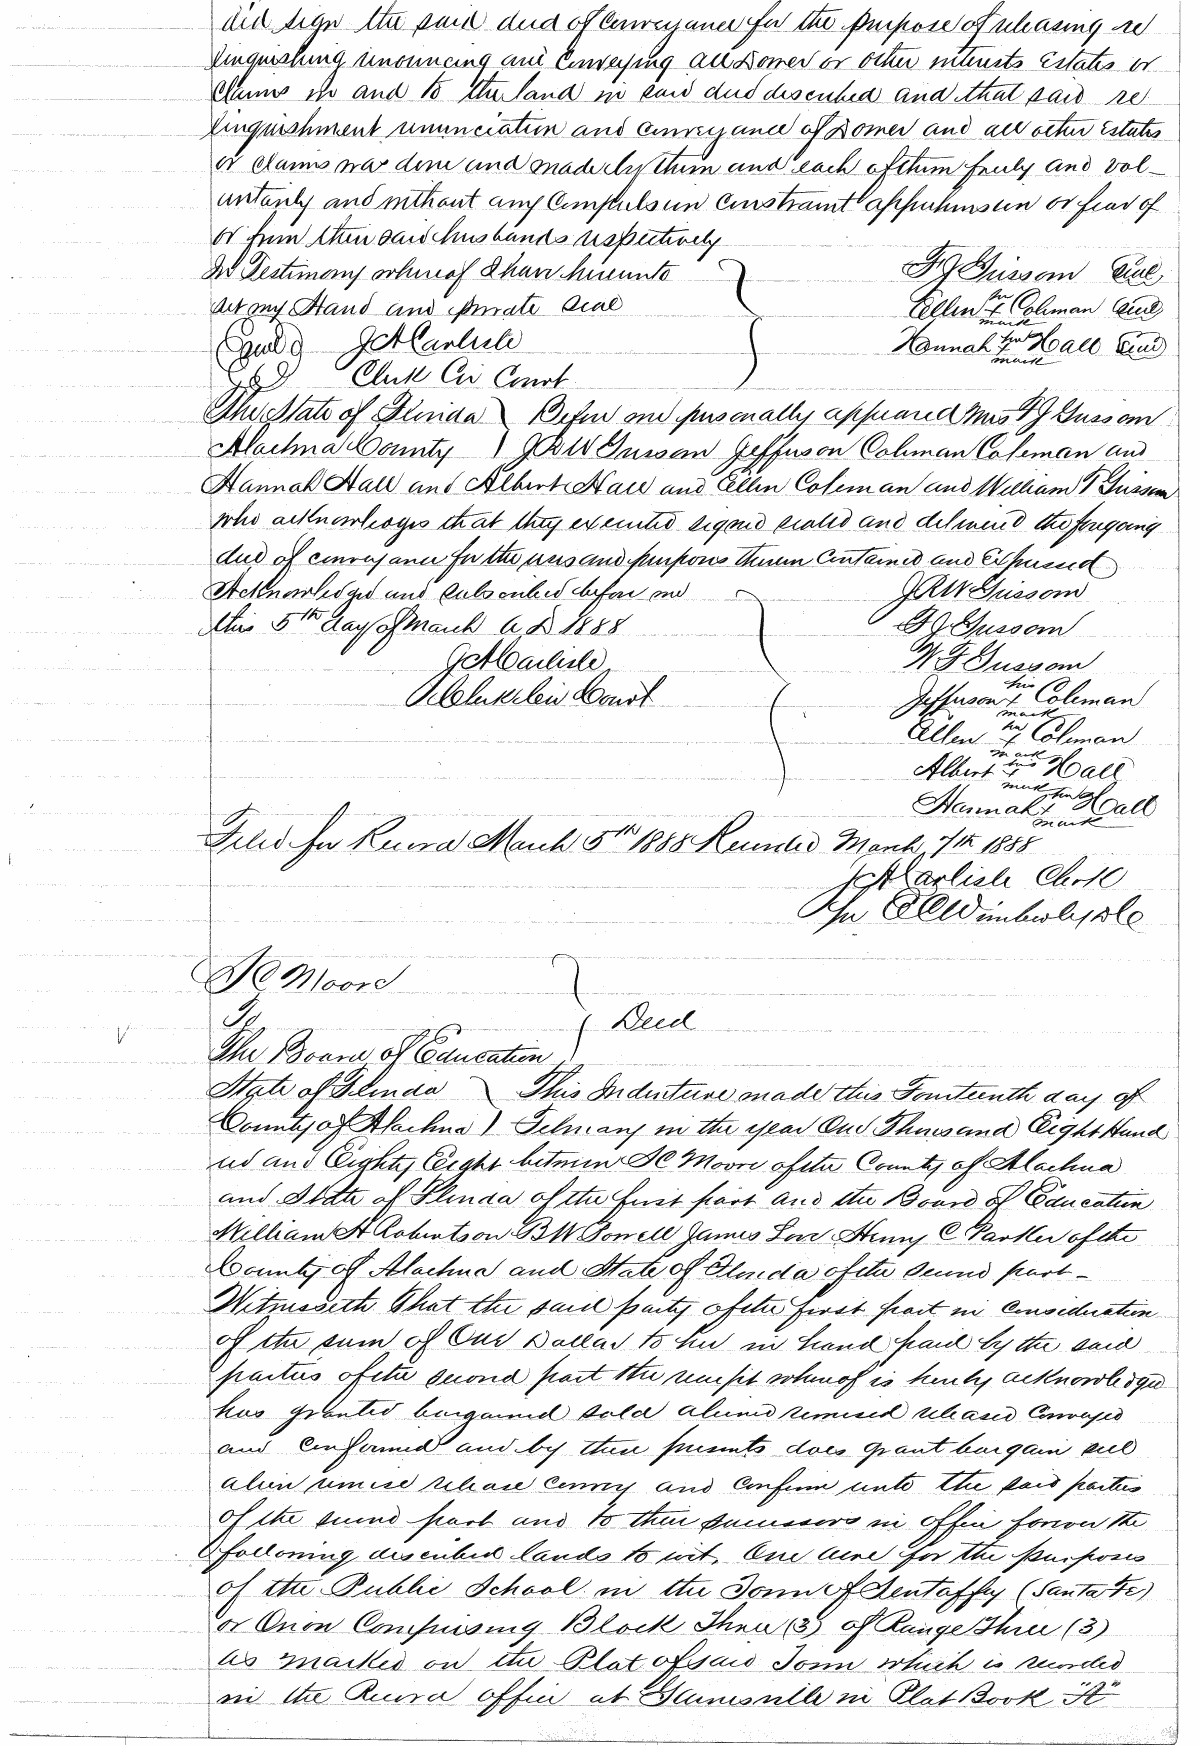 did sign the said deed of Conveyance for the purpose of releasing re
linquishing renouncing and Conveying all Dower or other interests Estates or
Claims in and to the land in said deed described and that said re
linquishment renunciation and conveyance of Dower and all other Estates
or Claims was done and made by them and each of them freely and vol-
untarily and without any Compulsion Constraint apprehension or fear of
or from their said husbands respectively
In Testimony whereof I have hereunto
set my Hand and private Seal
Seal J A Carlisle
Clerk Cir Court
F J Sussom Seal
Ellen her x mark Coleman Seal
Hannah her x mark Hall Seal
The State of Florida Before me personally appeared Mrs F J Sussom
Alachua County J R W Sussom Jefferson Coleman Coleman and
Hannah Hall and Albert Hall and Ellen Coleman and William F Sussom
who acknowledges that they executed signed sealed and delivered the foregoing
deed of conveyance for the uses and purposes therein Contained and Expressed
Acknowledged and subscribed before me
this 5th day of March A D 1888
J A Carlisle
Clerk Cir Court
J R W Sussom
F J Sussom
W F Sussom
Jefferson his x mark Coleman
Ellen her x mark Coleman
Albert his x mark Hall
Hannah her x mark Hall
Filed for Record March 5th 1888 Recorded March 7th 1888
J A Carlisle Clerk
Per Wimberly DC
S C Moore
To
Deed
The Board of Education
State of Florida This Indenture made this Fourteenth day of
County of Alachua Febuary in the year One Thousand Eight Hund
red and Eighty Eight between S C Moore of the County of Alachua
and State of Florida of the first part and the Board of Education
William A Robertson B W Powell James Love Henry C Parker of the
County of Alachua and State of Florida of the second part -
Witnesseth That the said party of the first part in Consideration
of the sum of One Dollar to her in hand paid by the said
parties of the second part the receipt whereof is hereby acknowledged
has granted bargained sold aliened remised released Conveyed
and Confirmed and by these presents does grant bargain sell
alien remise release convey and confirm unto the said parties
of the second part and to their successors in office forever the
following described lands to wit, One acre for the purposes
of the Public School in the Town of Sentaffey (Santa Fe)
or Orion Comprising Block Three (3) of Range Three (3)
as marked on the Plat of said Town which is recorded
in the Record office at Gainesville in Plat Book "A"